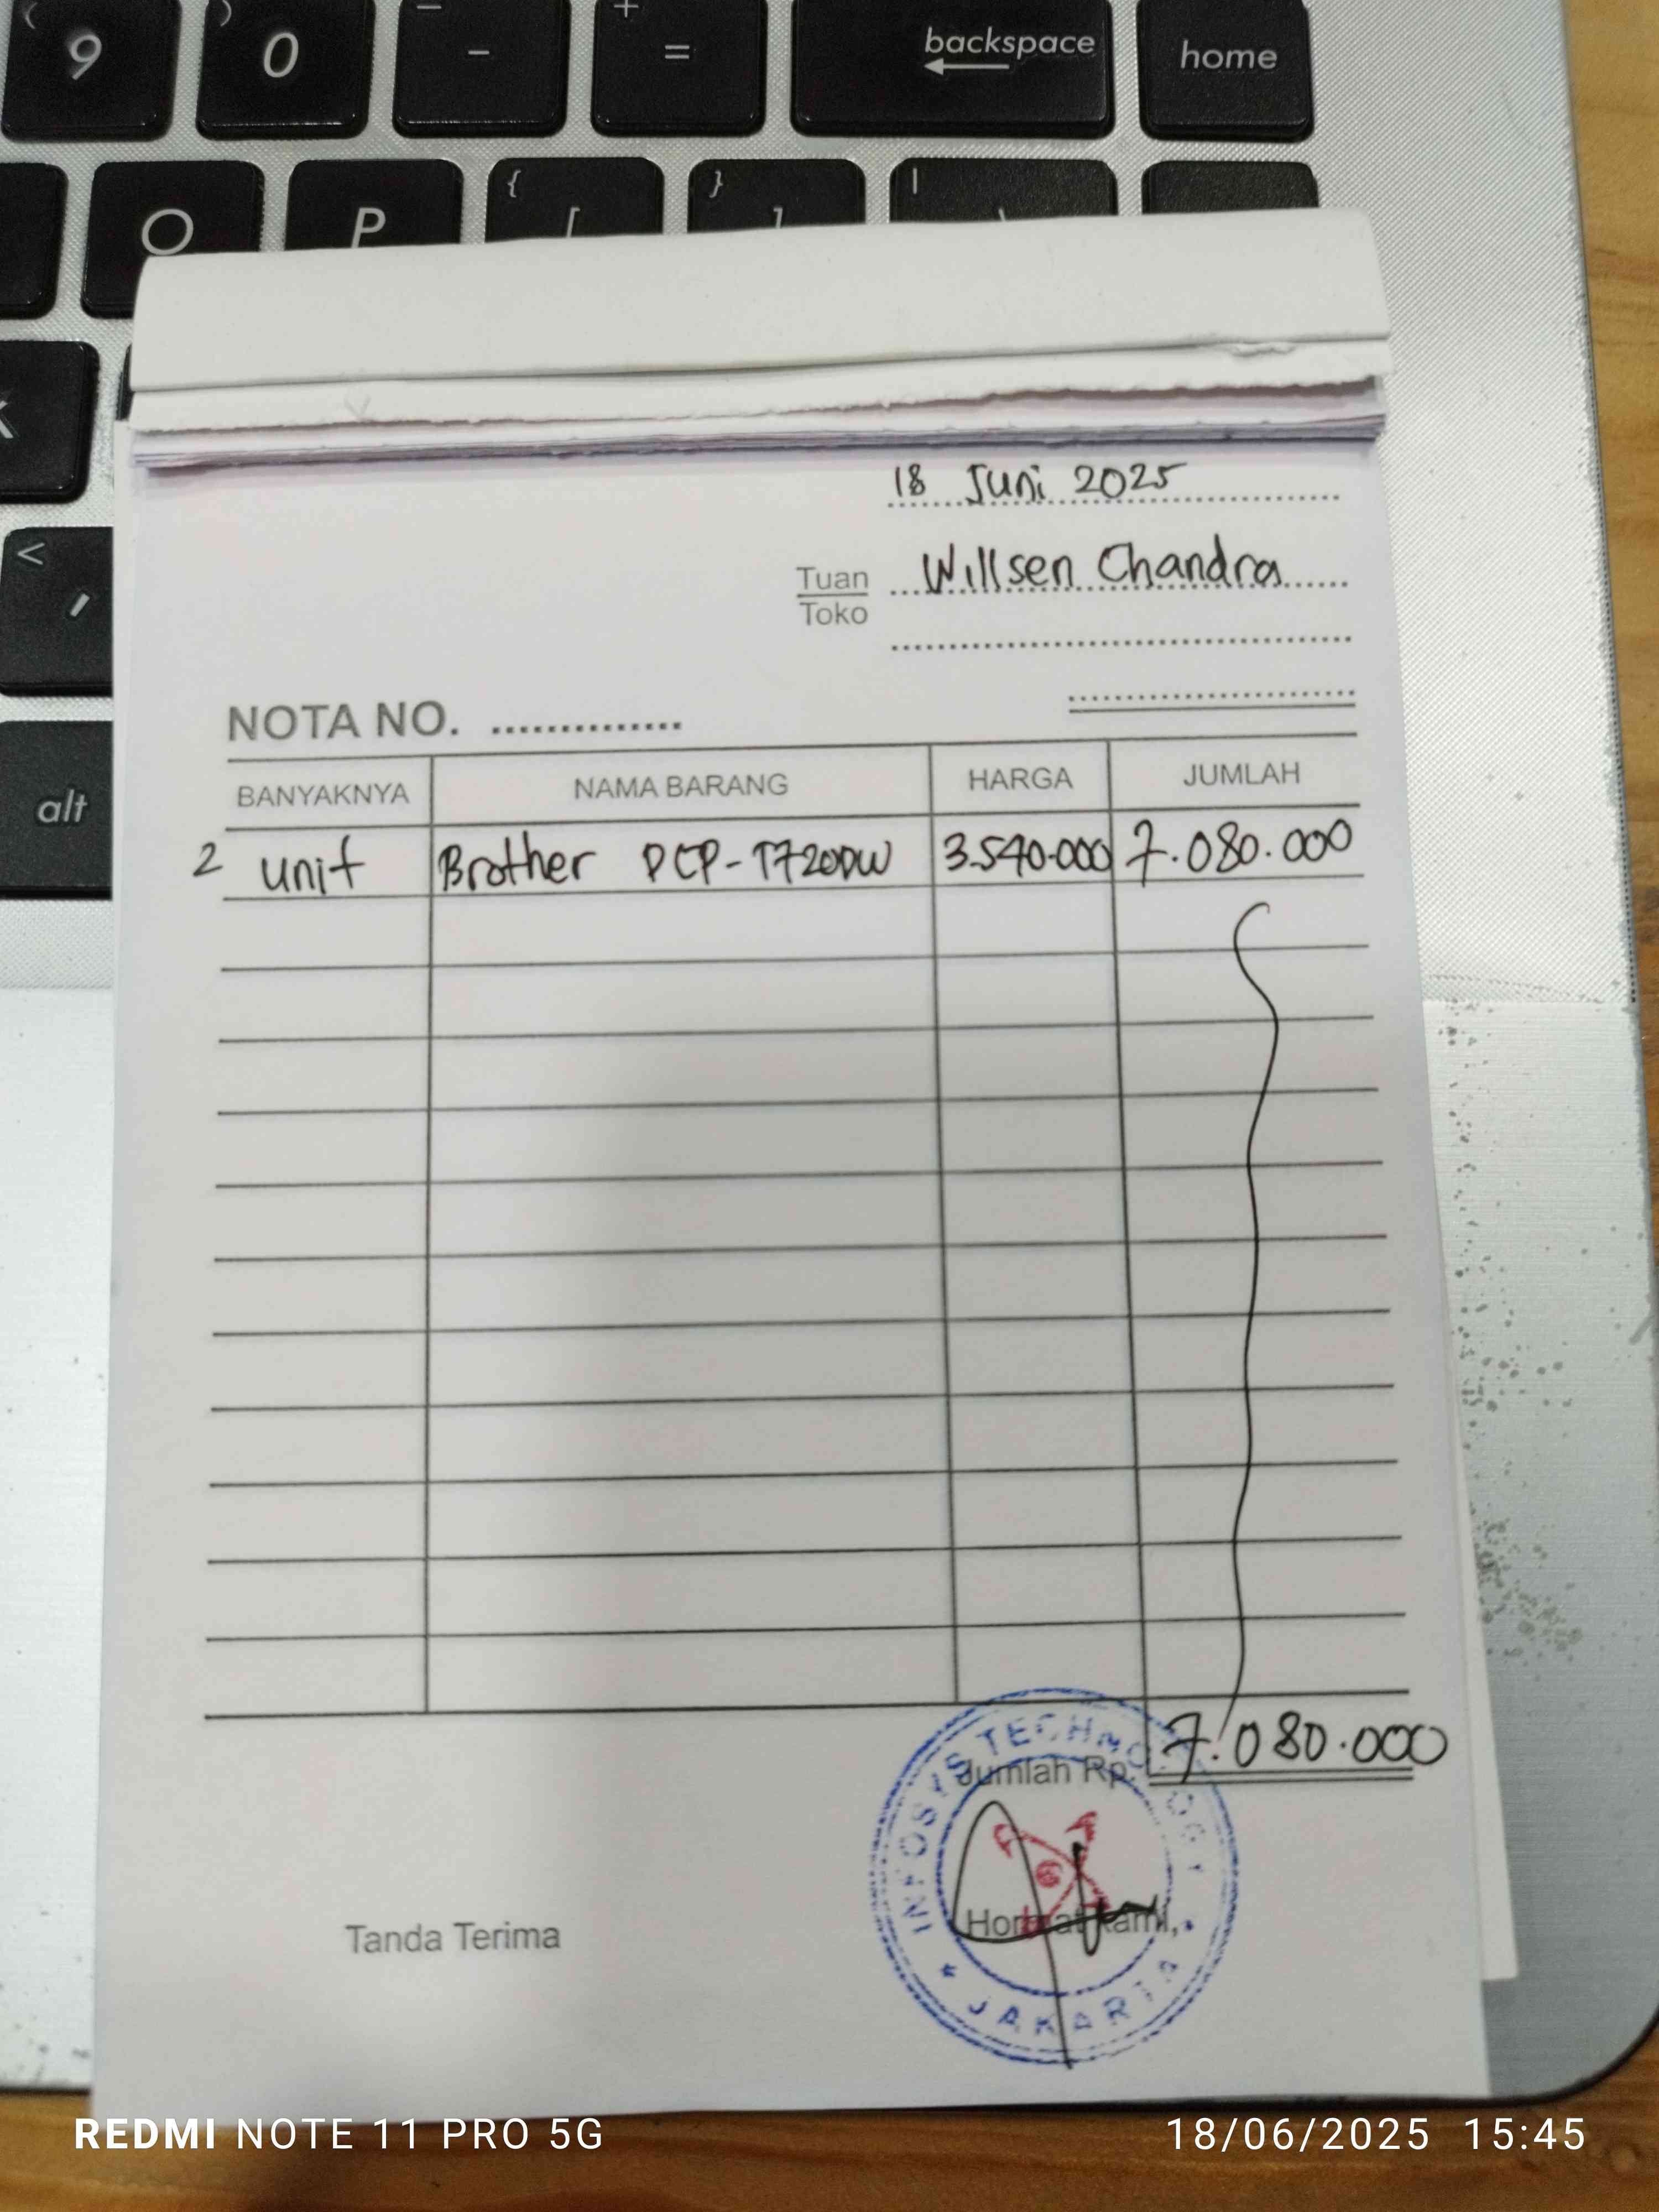 ( 9 ) 0 _ - + = backspace home
O P { [ } ] | \
K
< ,
alt
18 Juni 2025
Tuan Willsen Chandra
Toko
NOTA NO. ..............
BANYAKNYA NAMA BARANG HARGA JUMLAH
2 unit Brother DCP-T720DW 3.540.000 7.080.000
Jumlah Rp. 7.080.000
INFOSYS TECHNOLOGY
Tanda Terima Hormat kami,
* JAKARTA *
REDMI NOTE 11 PRO 5G 18/06/2025 15:45